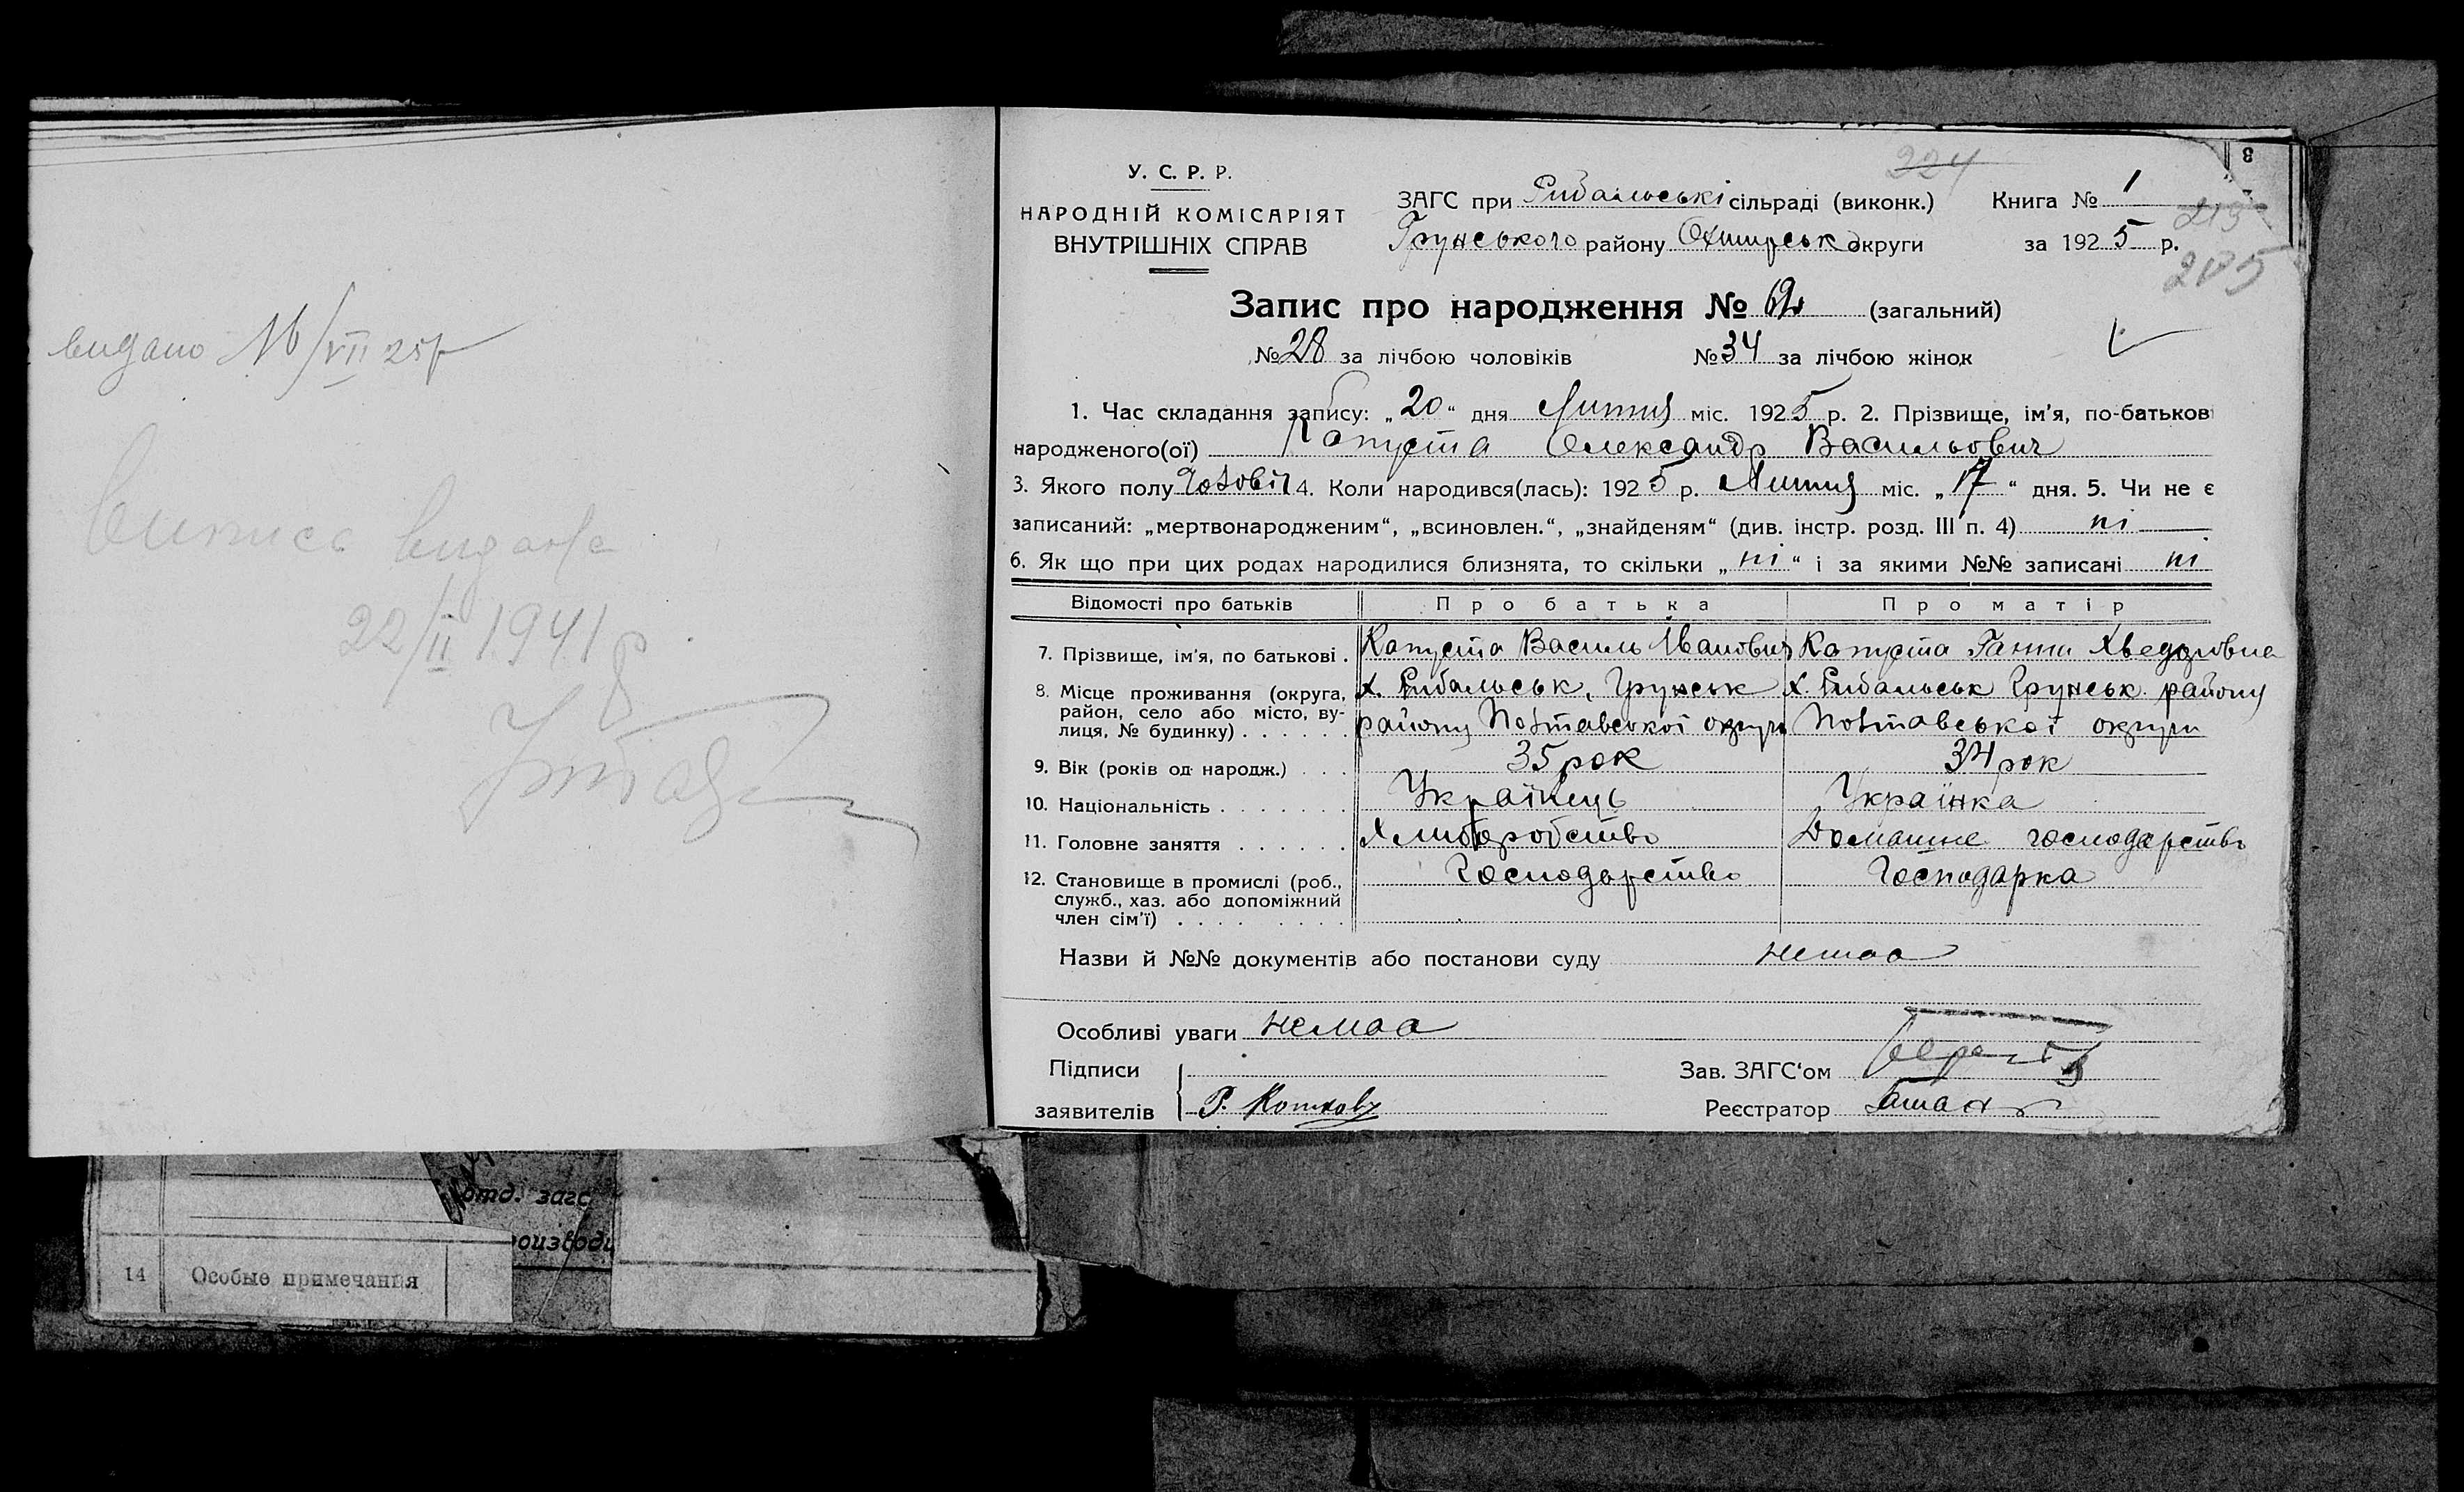 видано 16/VII 25р
Виписс видана
22/II 1941 р
отд. загс
14 Особые примечания
224
У. С. Р. Р.
НАРОДНІЙ КОМІСАРІЯТ
ВНУТРІШНІХ СПРАВ
ЗАГС при Рибальські сільраді (виконк.) Книга № 1
213
Грунського району Охтирськ округи за 1925 р.
205
Запис про народження № 62 (загальний)
№ 28 за лічбою чоловіків № 34 за лічбою жінок
1. Час складання запису: „20“ дня Липня міс. 1925 р. 2. Прізвище, ім'я, по-батькові
народженого(ої) Капуста Олександр Васильович
3. Якого полу Чоловіч 4. Коли народився(лась): 1925 р. Липня міс. „17“ дня. 5. Чи не є
записаний: „мертвонародженим“, „всиновлен.“, „знайденям“ (див. інстр. розд. III п. 4) ні
6. Як що при цих родах народилися близнята, то скільки „ні“ і за якими №№ записані ні
Відомості про батьків Про батька Про матір
7. Прізвище, ім'я, по батькові . Капуста Василь Іванович Капуста Ганни Хведоровна
8. Місце проживання (округа, район, село або місто, вулиця, № будинку) . . . . . . х. Рибальськ, Грунськ х. Рибальськ Грунськ району
району Полтавської округи Полтавської округи
9. Вік (років од народж.) . . . 35 рок 34 рок
10. Національність . . . . . . . Українець Українка
11. Головне заняття . . . . . . Хлиборобство Домашне господарство
12. Становище в промислі (роб., Господарство Господарка
служб., хаз. або допоміжний
член сім'ї) . . . . . . . . .
Назви й №№ документів або постанови суду немаа
Особливі уваги немаа
Підписи Зав. ЗАГС'ом
заявителів Реєстратор